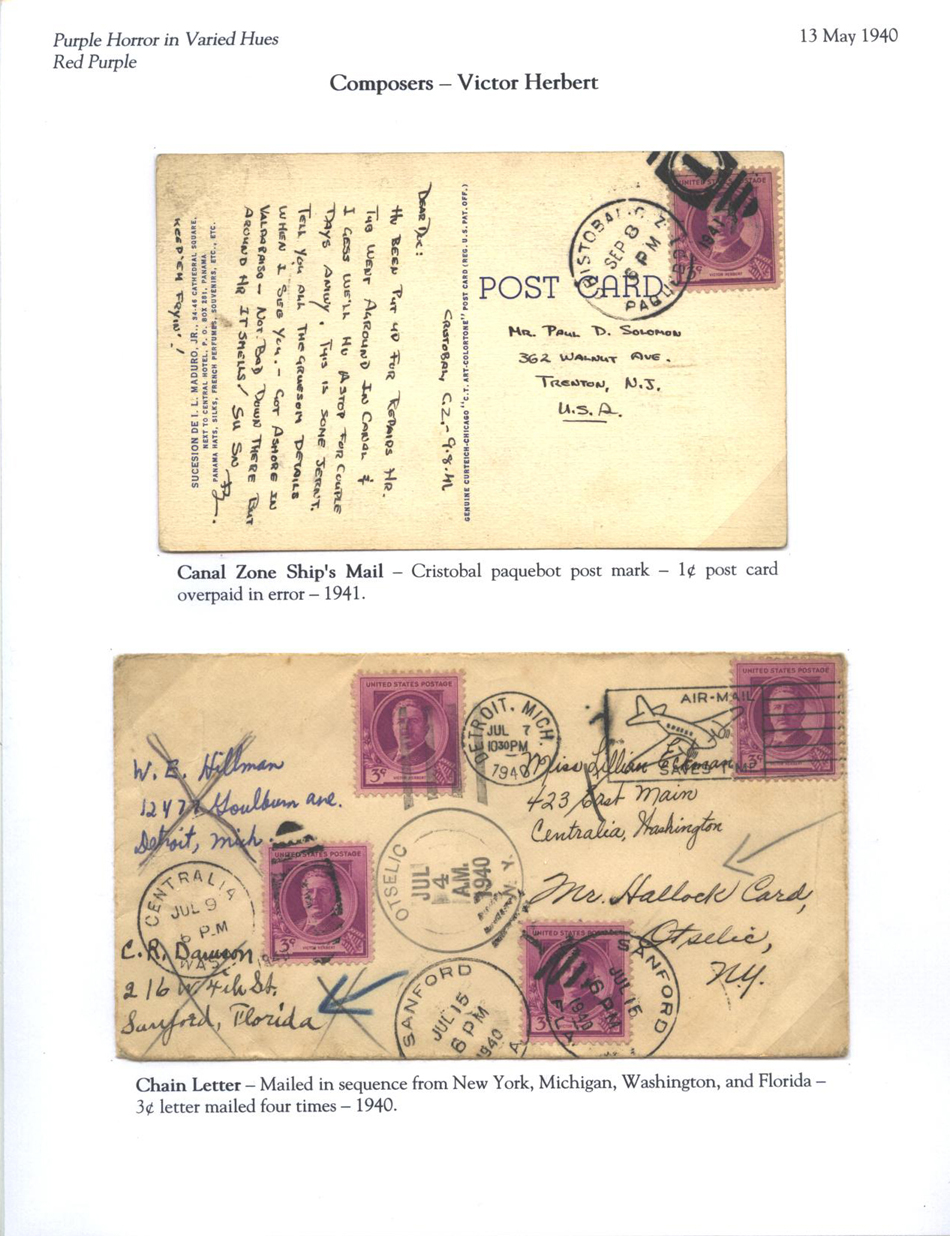 Purple Horror in Varied Hues
Red Purple
13 May 1940
Composers – Victor Herbert
DEAR DOC:
CRISTOBAL, C.Z. - 9.8.41
HV BEEN PUT UP FOR REPAIRS HR.
THS WENT AGROUND IN CANAL &
I GESS WE'LL HV A STOP FOR COUPLE
DAYS ANIWY. THIS IS SOME JERNT.
TELL YOU ALL THE GRUESOM DETAILS
WHEN I SEE YOU. - GOT ASHORE IN
VALPARAISO - NOT BAD DOWN THERE BUT
AROUND HR IT SMELLS! SU SN
KEEP EM FRYIN'!
SUCESION DE I. L. MADURO, JR., 34-46 CATHEDRAL SQUARE,
NEXT TO CENTRAL HOTEL, P. O. BOX 281, PANAMA
PANAMA HATS, SILKS, FRENCH PERFUMES, SOUVENIRS, ETC., ETC.
GENUINE CURTEICH-CHICAGO "C.T. ART-COLORTONE" POST CARD (REG. U.S. PAT. OFF.)
POST CARD
CRISTOBAL, C.Z.
SEP 8
6 PM
1941
PAQUEBOT
1
UNITED STATES POSTAGE
3¢
VICTOR HERBERT
MR. PAUL D. SOLOMON
362 WALNUT AVE.
TRENTON, N.J.
U.S.A.
Canal Zone Ship's Mail – Cristobal paquebot post mark – 1¢ post card
overpaid in error – 1941.
UNITED STATES POSTAGE
3¢
DETROIT, MICH.
JUL 7
1030PM
1940
AIR-MAIL
SAVES TIME
UNITED STATES POSTAGE
3¢
W. E. Hillman
Goulburn ave.
Detroit, Mich
Miss Lillian
423 East Main
Centralia, Washington
UNITED STATES POSTAGE
3¢
VICTOR HERBERT
OTSELIC
JUL
4
A.M.
1940
N.Y.
CENTRALIA
JUL 9
6 PM
WASH.
Mr. Hallock Card,
Otselic,
N.Y.
C. R. Dawson
216 W 4th St.
Sanford, Florida
SANFORD
JUL 15
6 PM
1940
UNITED STATES POSTAGE
3¢
SANFORD
JUL 15
6 PM
1940
FLA.
Chain Letter – Mailed in sequence from New York, Michigan, Washington, and Florida –
3¢ letter mailed four times – 1940.